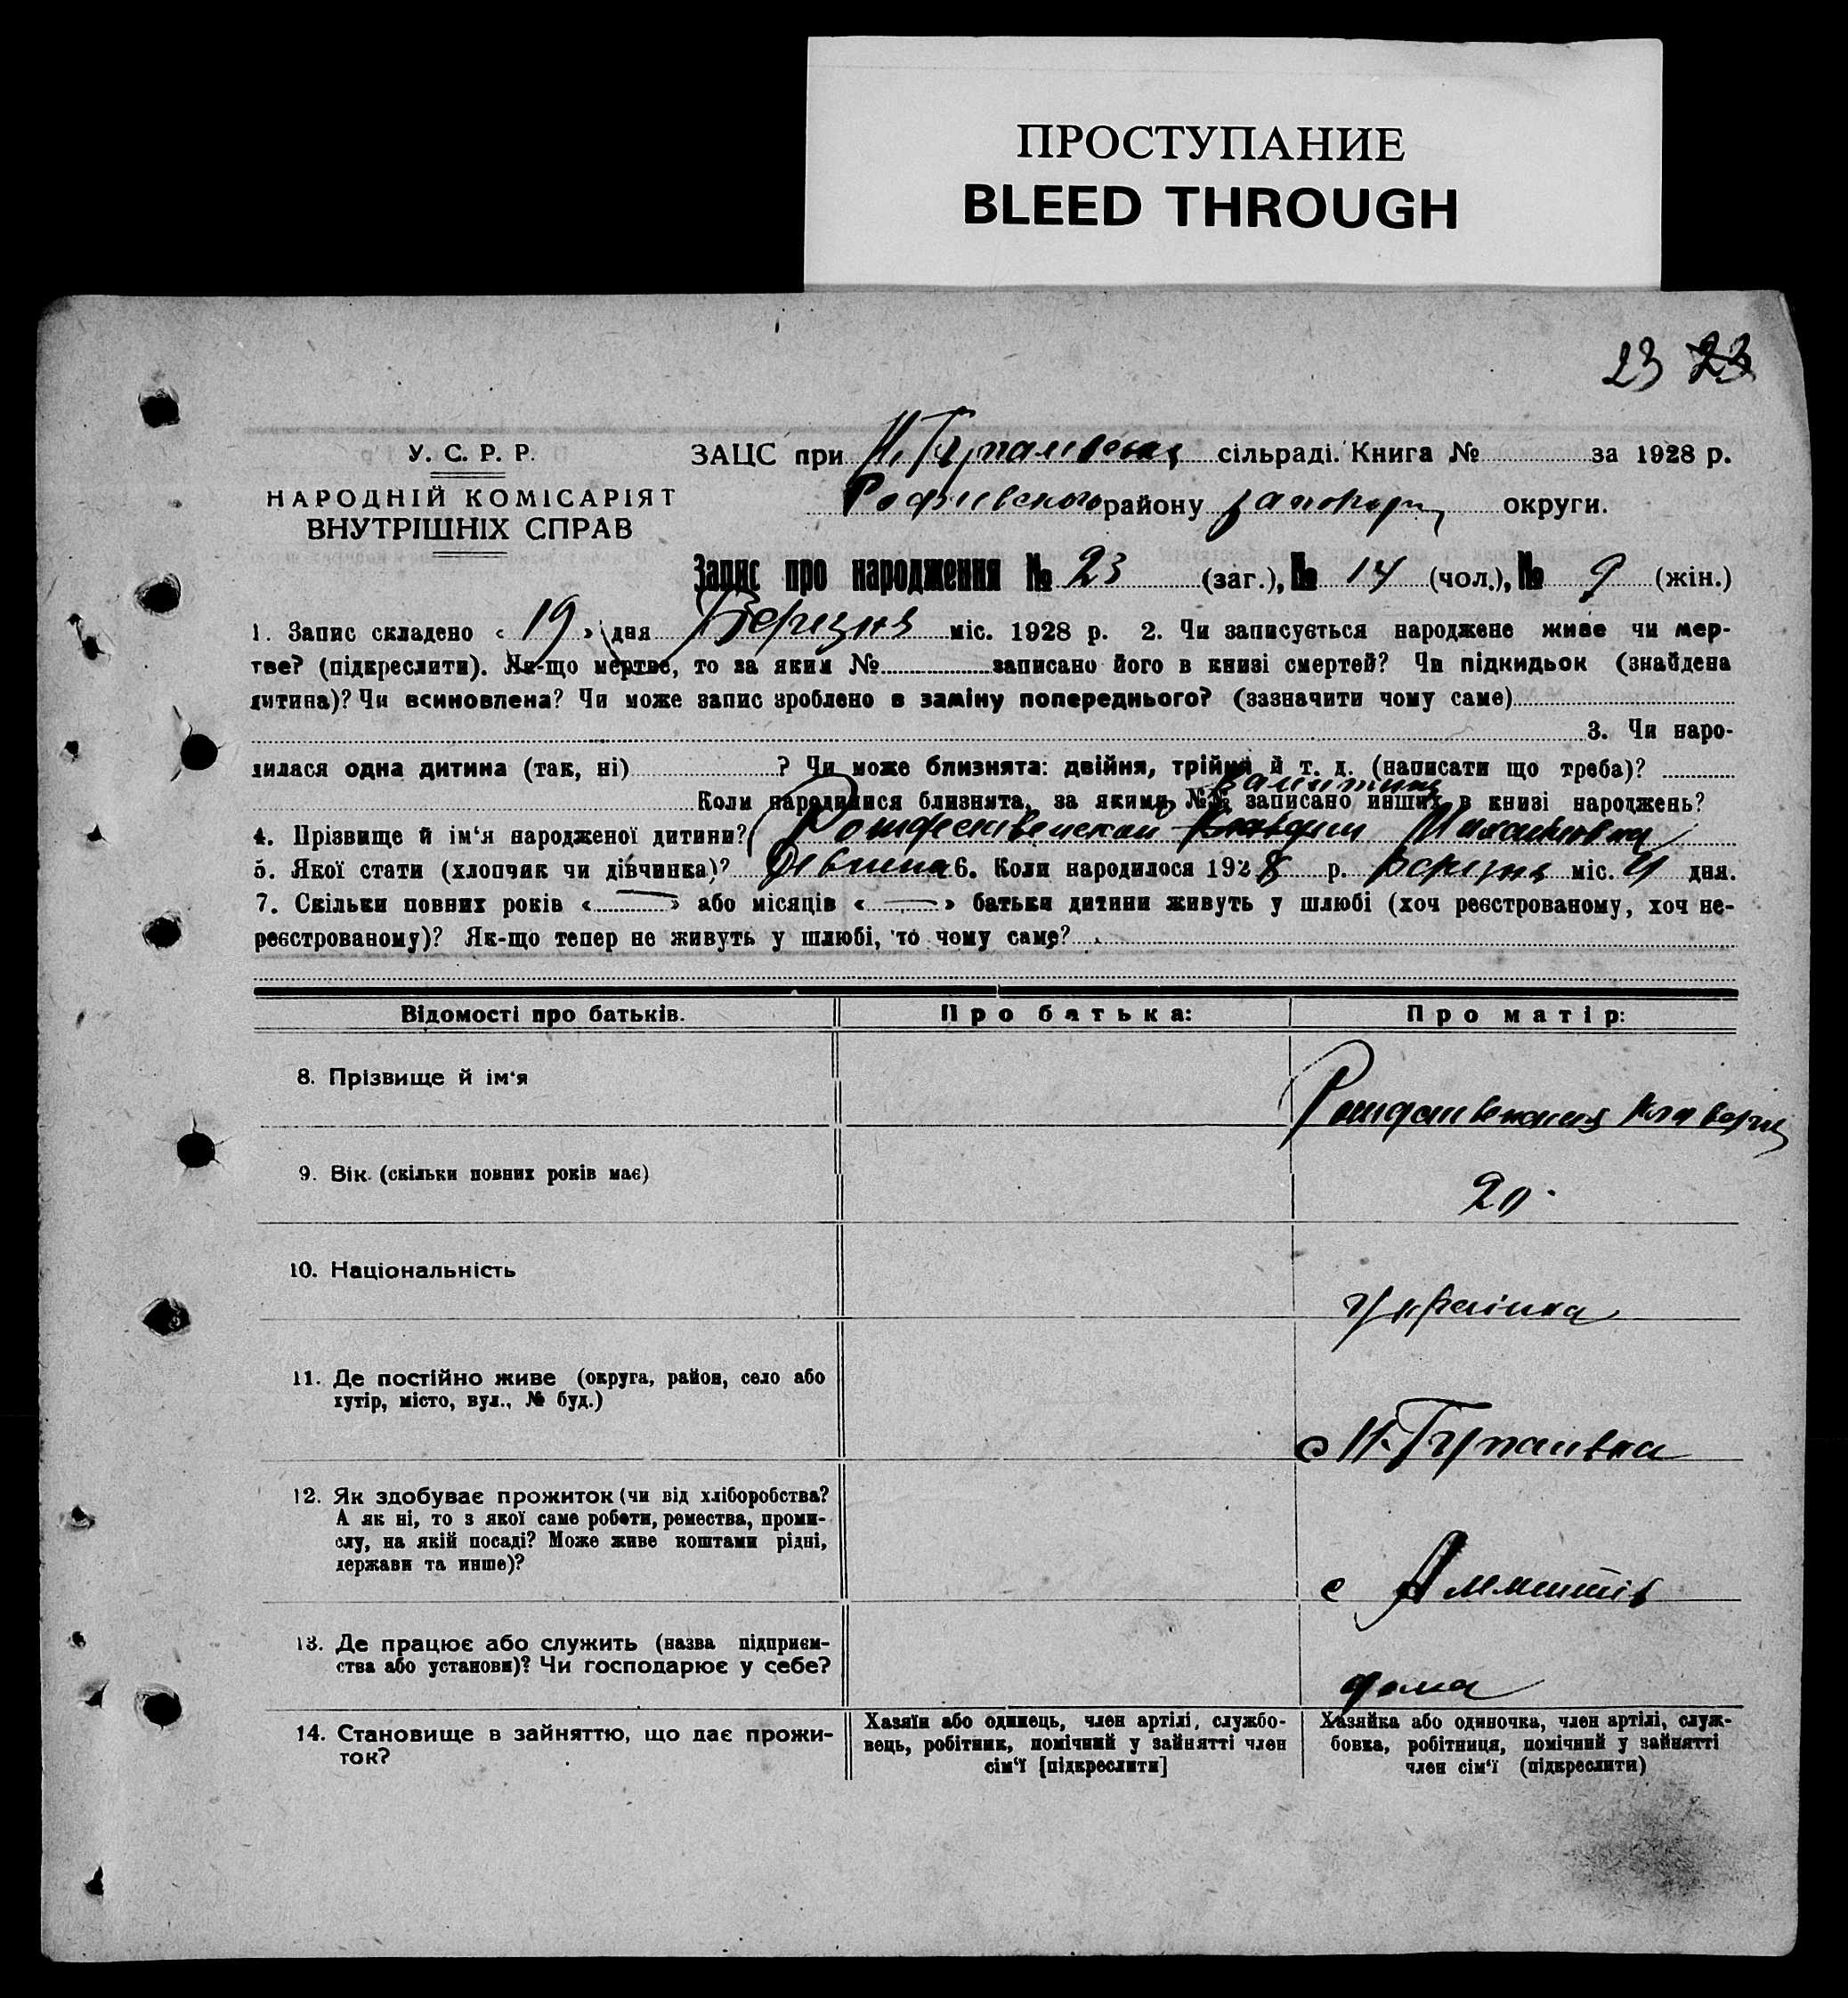 ПРОСТУПАНИЕ
BLEED THROUGH
23 23
У. С. Р. Р.
НАРОДНІЙ КОМІСАРІЯТ
ВНУТРІШНІХ СПРАВ
ЗАЦС при сільраді. Книга № за 1928 р.
району округи.
Запис про народження № 23 (заг.), № 14 (чол.), № 9 (жін.)
1. Запис складено « 19 » дня Березня міс. 1928 р. 2. Чи записується народжене живе чи мер-
тве? (підкреслити). Як-що мертве, то за яким № записано його в книзі смертей? Чи підкидьок (знайдена
дитина)? Чи всиновлена? Чи може запис зроблено в заміну попереднього? (зазначити чому саме)
3. Чи наро-
дилася одна дитина (так, ні) ? Чи може близнята: двійня, трійня й т. д. (написати що треба)?
Коли народилися близнята, за якими №№ записано инших в книзі народжень?
4. Прізвище й ім‘я народженої дитини?
5. Якої стати (хлопчик чи дівчинка)? 6. Коли народилося 1928 р. Березня міс. дня.
7. Скільки повних років « — » або місяців « — » батьки дитини живуть у шлюбі (хоч реєстрованому, хоч не-
реєстрованому)? Як-що тепер не живуть у шлюбі, то чому саме?
Відомості про батьків. Про батька: Про матір:
8. Прізвище й ім‘я
9. Вік (скільки повних років має)
20
10. Національність
Українка
11. Де постійно живе (округа, район, село або
хутір, місто, вул., № буд.)
12. Як здобуває прожиток (чи від хліборобства?
А як ні, то з якої саме роботи, ремества, проми-
слу, на якій посаді? Може живе коштами рідні,
держави та инше)?
13. Де працює або служить (назва підприєм-
ства або установи)? Чи господарює у себе?
дома
14. Становище в зайняттю, що дає прожи-
ток?
Хазяїн або одинець, член артілі, службо-
вець, робітник, помічний у зайнятті член
сім‘ї [підкреслити]
Хазяйка або одиночка, член артілі, служ-
бовка, робітниця, помічний у зайнятті
член сім‘ї (підкреслити)